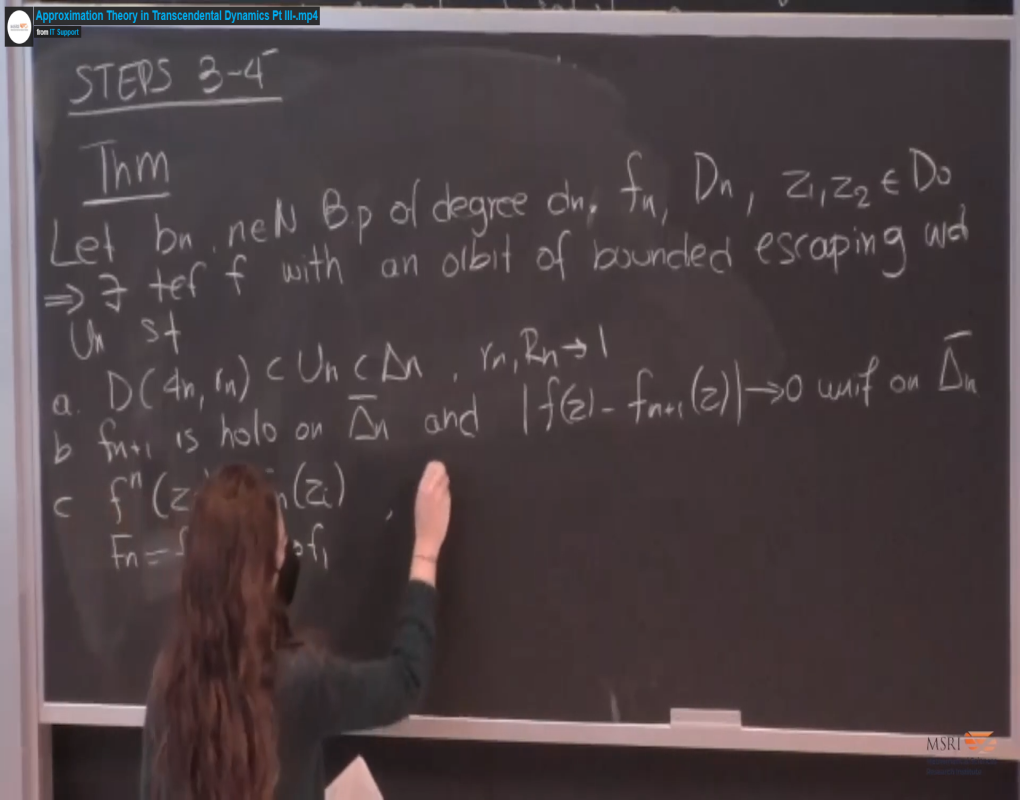 Approximation Theory in Transcendental Dynamics Pt III-.mp4
from IT Support
STEPS 3-4
Thm
Let bn, n∈N Bp of degree dn, fn, Dn, z1, z2 ∈ D0
⇒ ∃ tef f with an orbit of bounded escaping wd
Un st
a. D(4n, rn) ⊂ Un ⊂ Δn, rn, Rn → 1
b fn+1 is holo on Δ̄n and |f(z) - fn+1(z)| → 0 unif on Δ̄n
c f^n(z n(zi)
Fn = f ∘f1
MSRI